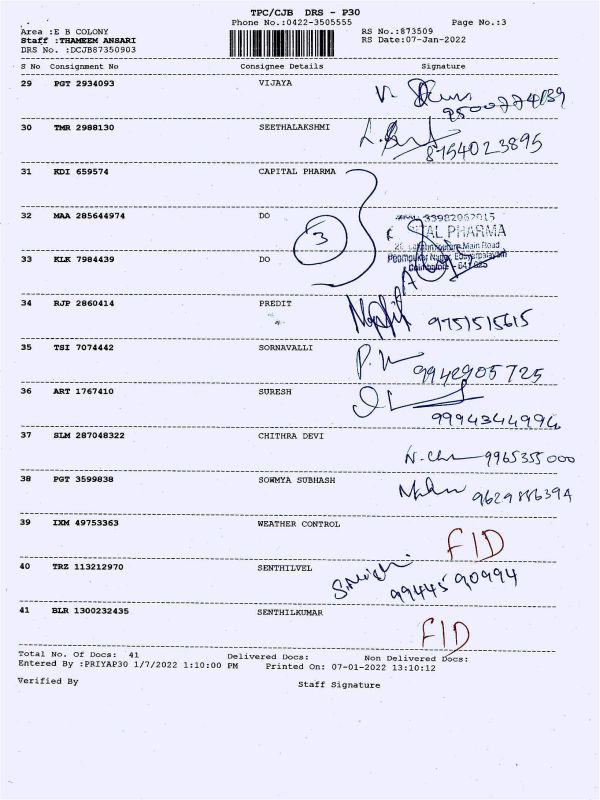 TPC/CJB DRS - P30
Phone No.:0422-3505555 Page No.:3
Area :E B COLONY RS No.:873509
Staff :THAMEEM ANSARI RS Date:07-Jan-2022
DRS No. :DCJB87350903
S No Consignment No Consignee Details Signature
29 PGT 2934093 VIJAYA
30 TMR 2988130 SEETHALAKSHMI 8754023895
31 KDI 659574 CAPITAL PHARMA
32 MAA 285644974 DO 3
PHARMA
33 KLK 7984439 DO
34 RJP 2860414 PREDIT 9751515615
35 TSI 7074442 SORNAVALLI 9942905725
36 ART 1767410 SURESH 9994344994
37 SLM 287048322 CHITHRA DEVI 9965355000
38 PGT 3599838 SOWMYA SUBHASH
39 IXM 49753363 WEATHER CONTROL FID
40 TRZ 113212970 SENTHILVEL 9944590994
41 BLR 1300232435 SENTHILKUMAR FID
Total No. Of Docs: 41 Delivered Docs: Non Delivered Docs:
Entered By :PRIYAP30 1/7/2022 1:10:00 PM Printed On: 07-01-2022 13:10:12
Verified By Staff Signature